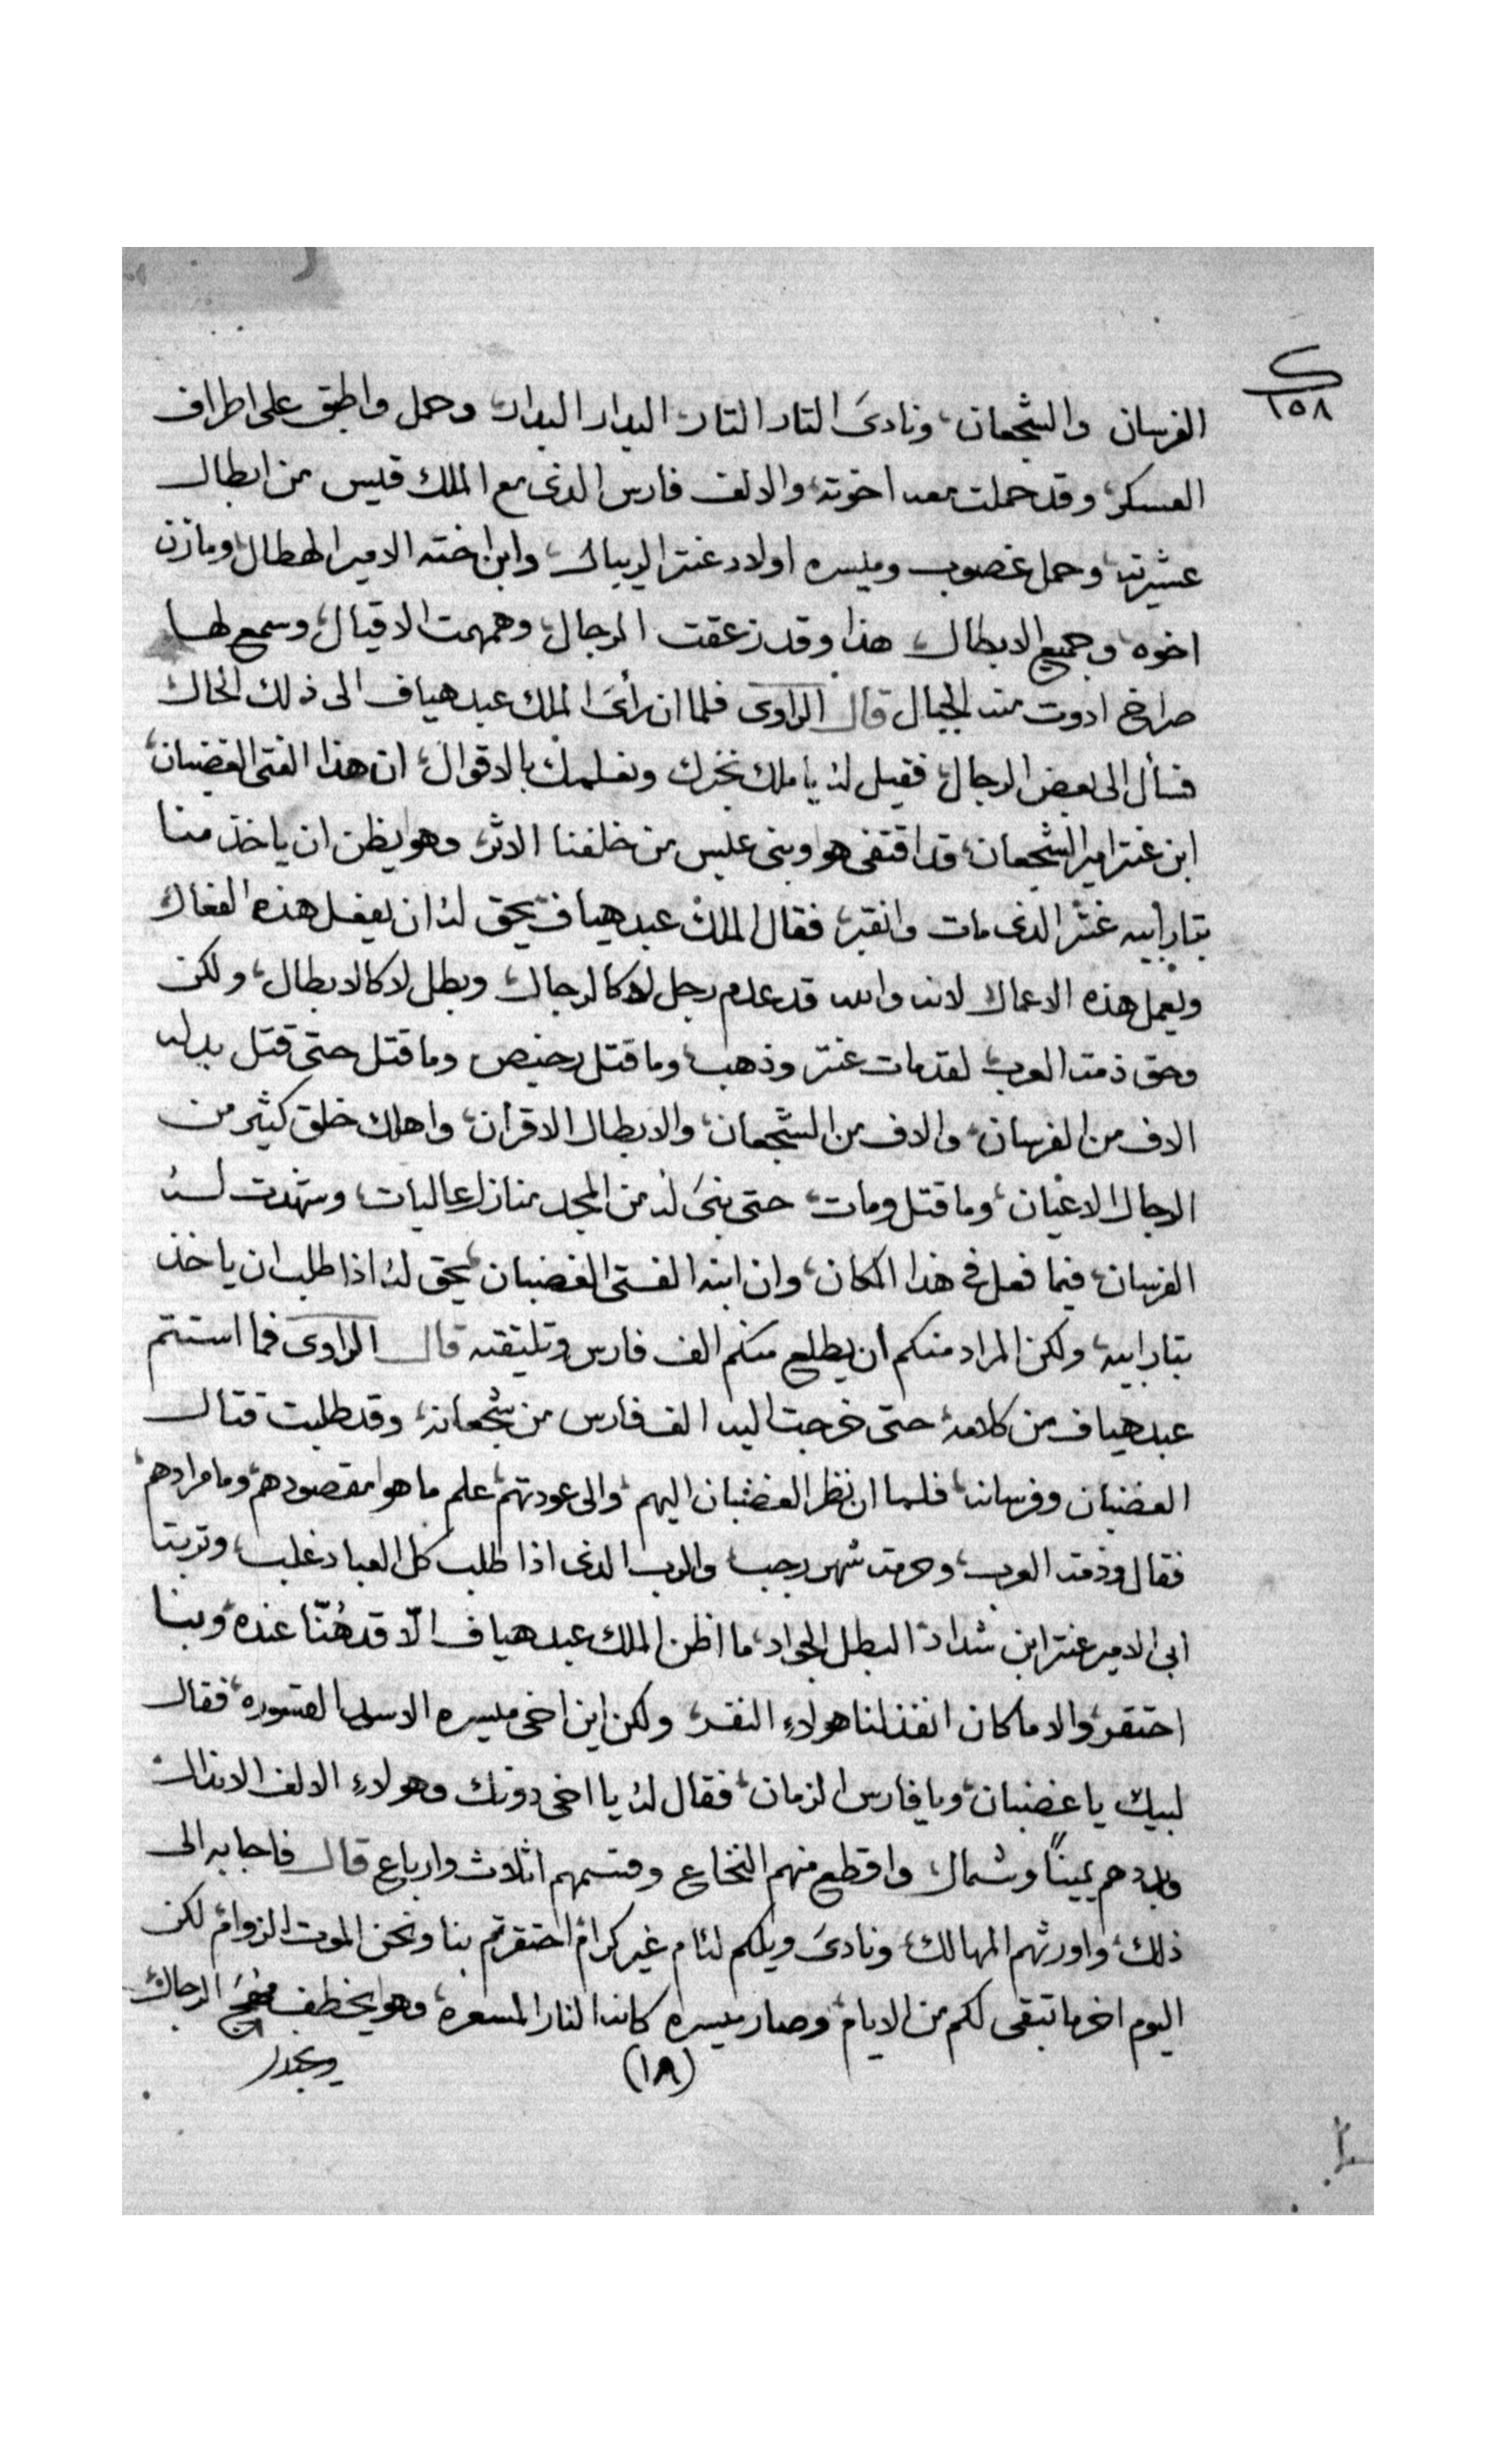 ك
١٥٨
الفرسان والشجعان، ونادىَ التار التار، البدار البدار، وحمل واطبق على اطراف
العسكر، وقد حملت معه اخوته، والالف فارس الذى مع الملك قيس من ابطال
عشيرته، وحمل غصوب وميسره اولاد عنتر الريبال، وابن اخته الامير الهطال، ومازن
اخوه، وجميع الابطال، هذا وقد زعقت الرجال، وهمهمت الاقيال، وسمع لها
صراخ ادوت منه الجبال قال الراوى فلما ان رأىَ الملك عبد هياف الى ذلك الحال
فسأل الى بعض الرجال، فقيل له يا ملك نخبرك ونعلمك بالاقوال، ان هذا الفتى الغضبان،
ابن عنتر امير الشجعان، قد اقتفى هو وبنى عبس من خلفنا الاثر، وهو يظن ان ياخذ منا
بتار أبيه عنتر الذى مات وانقبر، فقال الملك عبد هياف يحق له ان يفعل هذه الفعال
ويعمل هذه الاعمال لانه والله قد عدم رجل لا كالرجال، وبطل لا كالابطال، ولكن
وحق ذمة العرب، لقد مات عنتر وذهب، وما قتل رخيص وما قتل حتى قتل بداله
الاف من الفرسان، والاف من الشجعان، والابطال الاقران، واهلك خلق كثير من
الرجال الاعيان، وما قتل ومات، حتى بنىَ له من المجد منازل عاليات، وشهدت له
الفرسان، فيما فعل فى هذا المكان، وان ابنه الفتى الغضبان، يحق له اذا طلب ان ياخذ
بتار ابيه، ولكن المراد منكم أن يطلع منكم الف فارس وتلتقته قال الراوى فما استتم
عبد هياف من كلامه، حتى خرجت اليه الف فارس من شجعانه، وقد طلبت قتال
الغضبان وفرسانه، فلما ان نظر الغضبان اليهم، والى عودتهم، علم ما هو مقصودهم، وما مرادهم،
فقال وذمة العرب، وحرمة شهر رجب، والرب الذى اذا طلب كل العباد غلب، وتربة
أبى الامير عنتر ابن شداد، البطل الجواد، ما اظن الملك عبد هياف الّا قد هُنّا عنده، وبنا
احتقر، والا ما كان انفذ لنا هولاءِ النفر، ولكن اين اخى ميسره الاسد القسوره، فقال
لبيك يا غضبان، ويا فارس الزمان، فقال له يا اخى دونك وهولاءِ الالف الانذال
وبددهم يمينًا وشمال، واقطع منهم النخاع وقسمهم اثلاث وارباع قال فاجابه الى
ذلك، واورثهم المهالك، ونادىَ ويلكم لئام غير كرام، احتقرتم بنا ونحن الموت الزوام، لكن
اليوم اخر ما تبقى لكم من الايام، وصار ميسره كانه النار المسعره، وهو يخطف مهج الرجال،
ويجدل
(١٨)